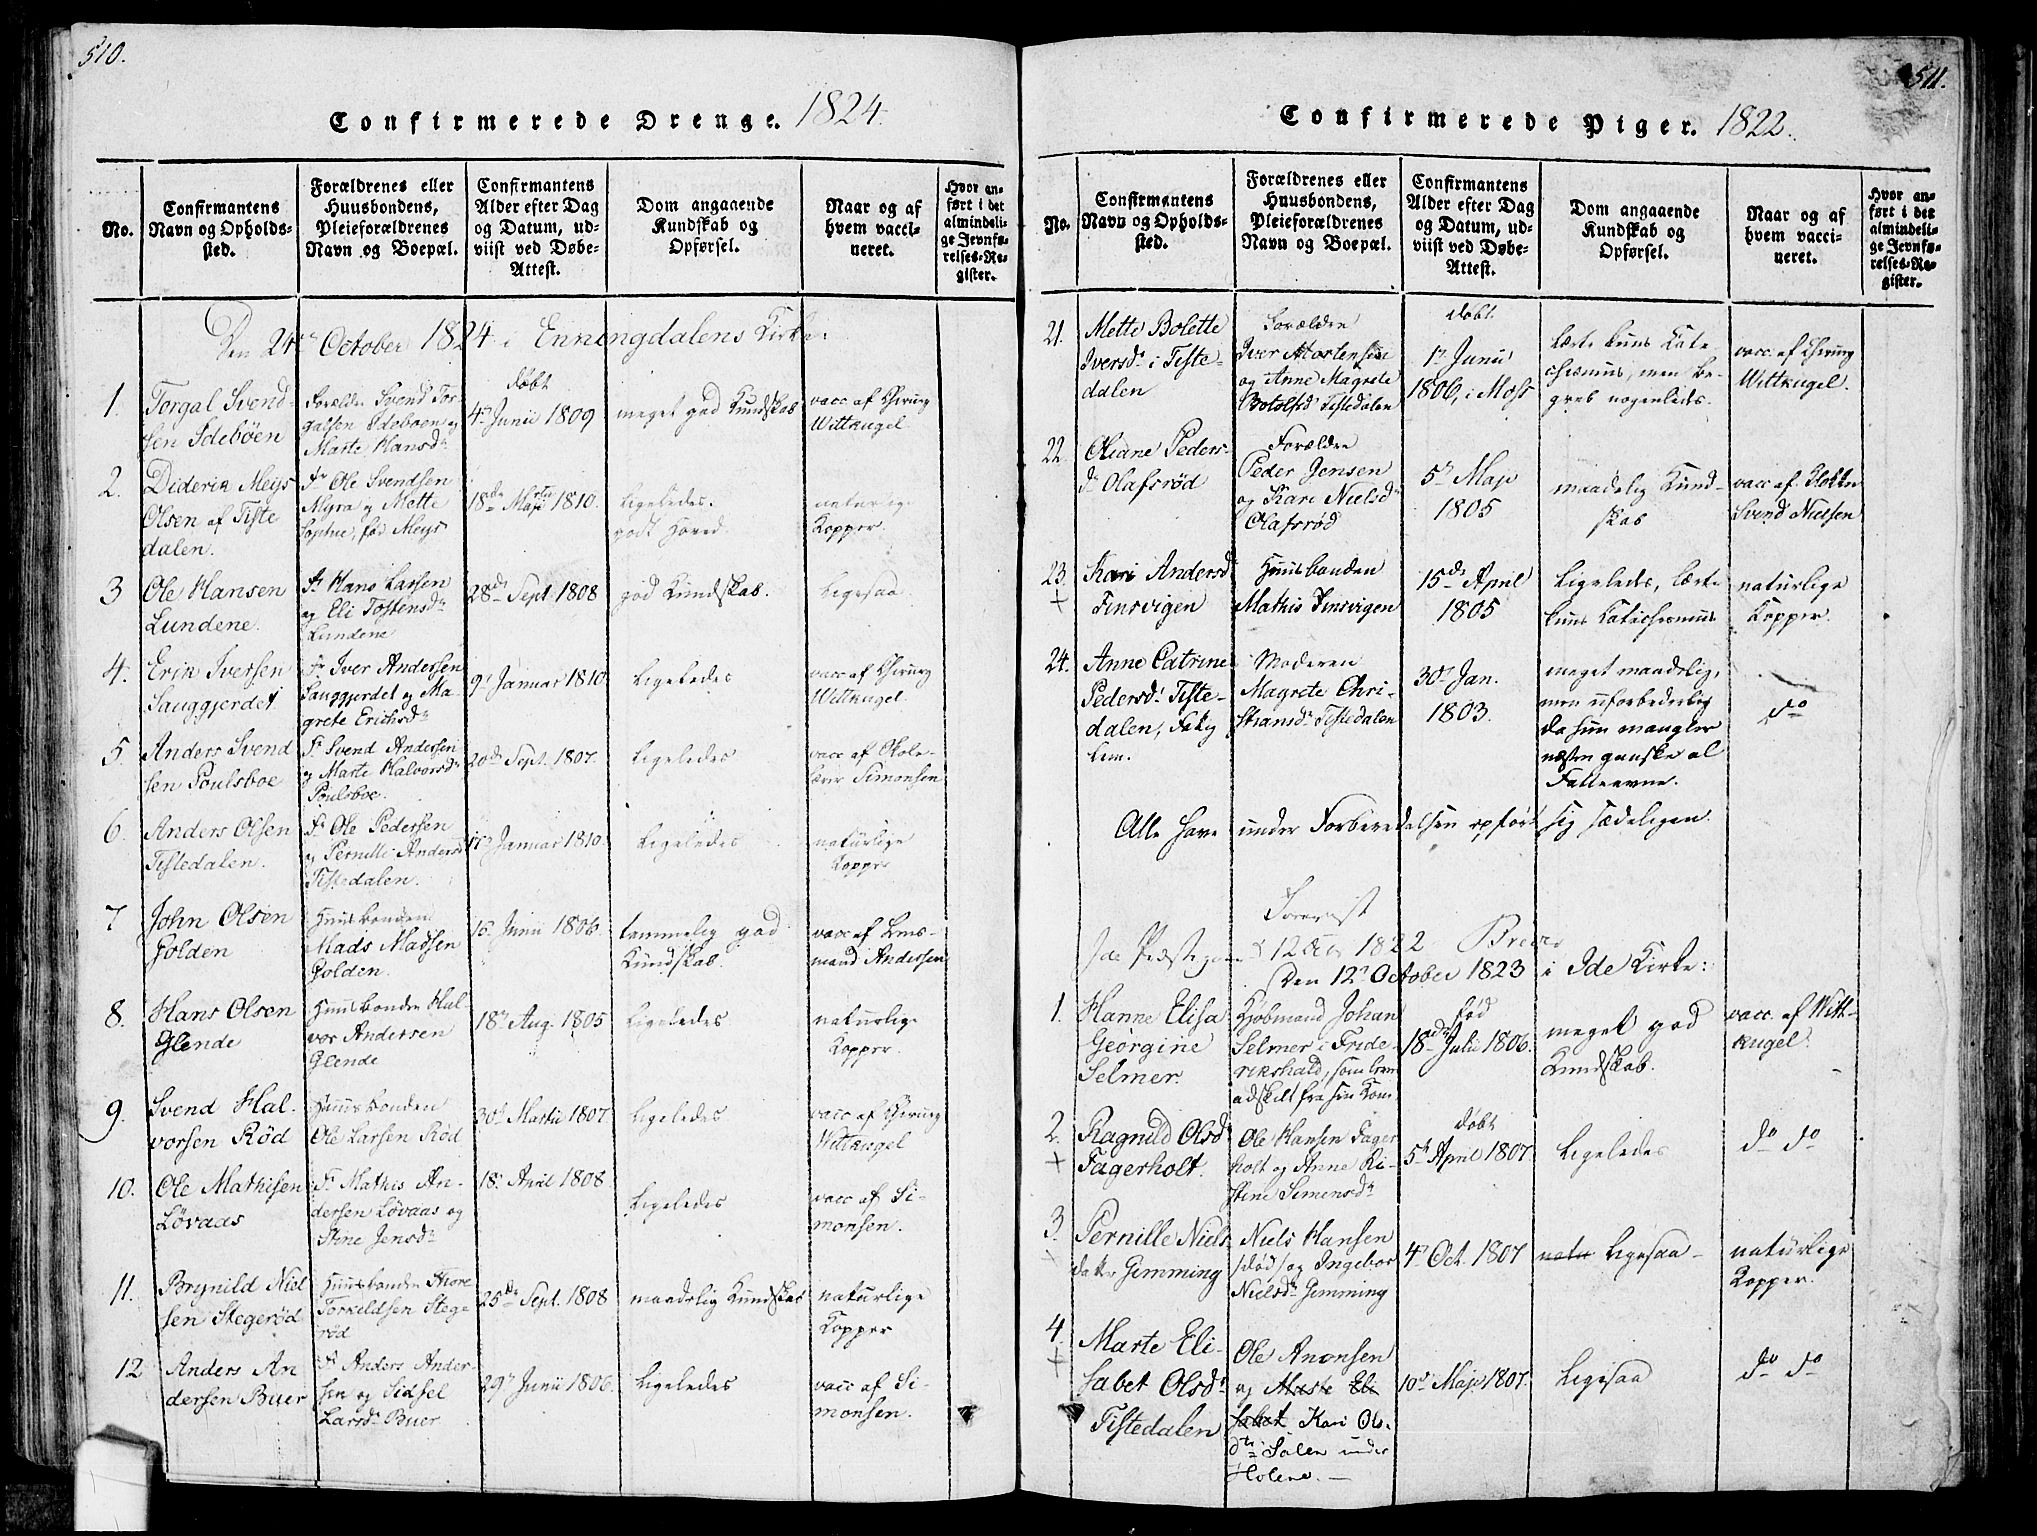 510.
Confirmerede Drenge. 1824.
No.
Confirmantens
Navn og Opholds-
sted.
Forældrenes eller
Huusbondens,
Pleieforældrenes
Navn og Boepæl.
Confirmantens
Alder efter Dag
og Datum, ud-
viist ved Døbe-
Attest.
Dom angaaende
Kundskab og
Opførsel.
Naar og af
hvem vacci-
neret.
Hvor an-
ført i det
almindeli-
ge Jevnfø-
relses-Re-
gister.
Den 24de October 1824 i Enningdalens Kirke:
1.
Torgal Svend-
sen Idebøen
Forældre Svend Tor-
galsen Idebøen og
Marte Hansdr
døbt
4de Junii 1809
meget god Kundskab
vacc af Chirurg
Wittkugel
2.
Diderik Meijs
Olsen af Tiste
dalen.
Fr Ole Svendsen
Myra og Mette
Sophie, fød Meijs
18de Martii 1810.
Ligeledes.
godt Hoved
naturlig
Kopper.
3
Ole Hansen
Lundene.
Fr Hans Larsen
og Eli Tostensdr
Lundene
28de Sept. 1808
god Kundskab.
Ligesaa
4.
Erik Iversen
Sauggjerdet
Fr Iver Andersen
Sauggjerdet og Ma-
grete Erichsdr
9de Januar 1810
Ligeledes
vacc af Chirurg
Wittkugel
5.
Anders Svend
sen Poulsboe
Fr Svend Andersen
og Marte Halvorsdr
Poulsboe.
20de Sept. 1807.
Ligeledes
vacc af Skole-
lærer Simonsen
6.
Anders Olsen
Tistedalen.
Fr Ole Pedersen
og Pernille Andersd
Tistedalen.
Januar 1810.
Ligeledes
naturlige
Kopper
7
John Olsen
Golden
Huusbonden
Mads Madsen
Golden.
Junii 1806.
temmelig god
Kundskab.
vacc af Lens-
mand Andersen
8.
Hans Olsen
Glende
Huusbonden Hal-
vor Andersen
Glende
18de Aug. 1805
Ligeledes
naturlige
Kopper.
9.
Svend Hal-
vorsen Rød
Huusbonden
Ole Larsen Rød
30de Martii 1807
Ligeledes
vacc af Chirurg
Wittkugel
10.
Ole Mathisen
Løvaas
Fr Mathis An-
dersen Løvaas og
Stine Jensdr
18de April 1808
Ligeledes
vacc af Si-
monsen.
11.
Brynild Niel
sen Stegerød
Huusbonden Thore
Torkeldsen Stege
rød
25de Sept. 1808
maadelig Kundskab
naturlige
Kopper
12
Anders An
dersen Buer
Fr Anders Ander-
sen og Sidsel
Larsdr Buer
29de Junii 1806.
Ligeledes
vacc af Si-
monsen.
511.
Confirmerede Piger. 1822.
No.
Confirmantens
Navn og Opholds-
sted.
Forældrenes eller
Huusbondens,
Pleieforældrenes
Navn og Boepæl.
Confirmantens
Alder efter Dag
og Datum, ud-
viist ved Døbe-
Attest.
Dom angaaende
Kundskab og
Opførsel.
Naar og af
hvem vacci-
neret.
Hvor an-
ført i det
almindeli-
ge Jevnfø-
relses-Re-
gister.
21.
Mette Bolette
Iversdr i Tiste-
dalen
Forældre
Iver Mortensen
og Anne Magrete
Botolfsd Tistedalen
døbt
1de Junii
1806, i Moss
læste kuns Kate-
chismus, men be-
greb nogenledes.
vacc. af Chirurg
Wittkugel.
22.
Oliane Peders-
dr Olafsrød
Forældre
Peder Jensen
og Kari Nielsdr
Olafsrød
5de Maji
1805
maadelig Kund-
skab
vacc. af Klokker
Svend Nielsen
23.
+
Kari Andersd
Finsvigen
Huusbonden
Mathis Finsvigen
15de April
1805
Ligeledes, læste
kuns Katechismus
naturlige
Kopper.
24.
Anne Catrine
Pedersdr Tiste-
dalen, Fattig
Lem.
Moderen
Magrete Chri-
stiansdr Tistedalen
30de Jan.
1803.
meget maadelig,
men uforbederlig
da hun mangler
næsten ganske al
Fatteevne.
do
Alle have under Forberedelsen opført sig sædeligen.
12 Octbr 1822
Den 12te October 1823 i Ide Kirke:
1.
Hanne Elisa
Georgine
Selmer.
Kjøbmand Johan
Selmer i Fride-
rikshald, som lever
adskilt fra sin Kone
fød
18de Julii 1806.
meget god
Kundskab.
vacc. af Witt-
kugel.
2.
+
Ragnild Olsd
Fagerholt
Ole Hansen Fager
holt og Anne Ki-
stine Simensdr
døbt
5te April 1807.
Ligeledes
do do
3.
+
Pernille Niels
datter Gimming
Niels Hansen
/død/ og Ingebor
Nielsdr Gimming
4de Oct. 1807
natu Ligesaa
naturlige
Kopper.
4.
+
Marte Eli-
sabet Olsdr
Tistedalen
Ole Anonsen
og Marte Eli
sabet Kari Ols-
dtr Solen under
Holene.
10de Maji 1807.
Ligesaa
do do